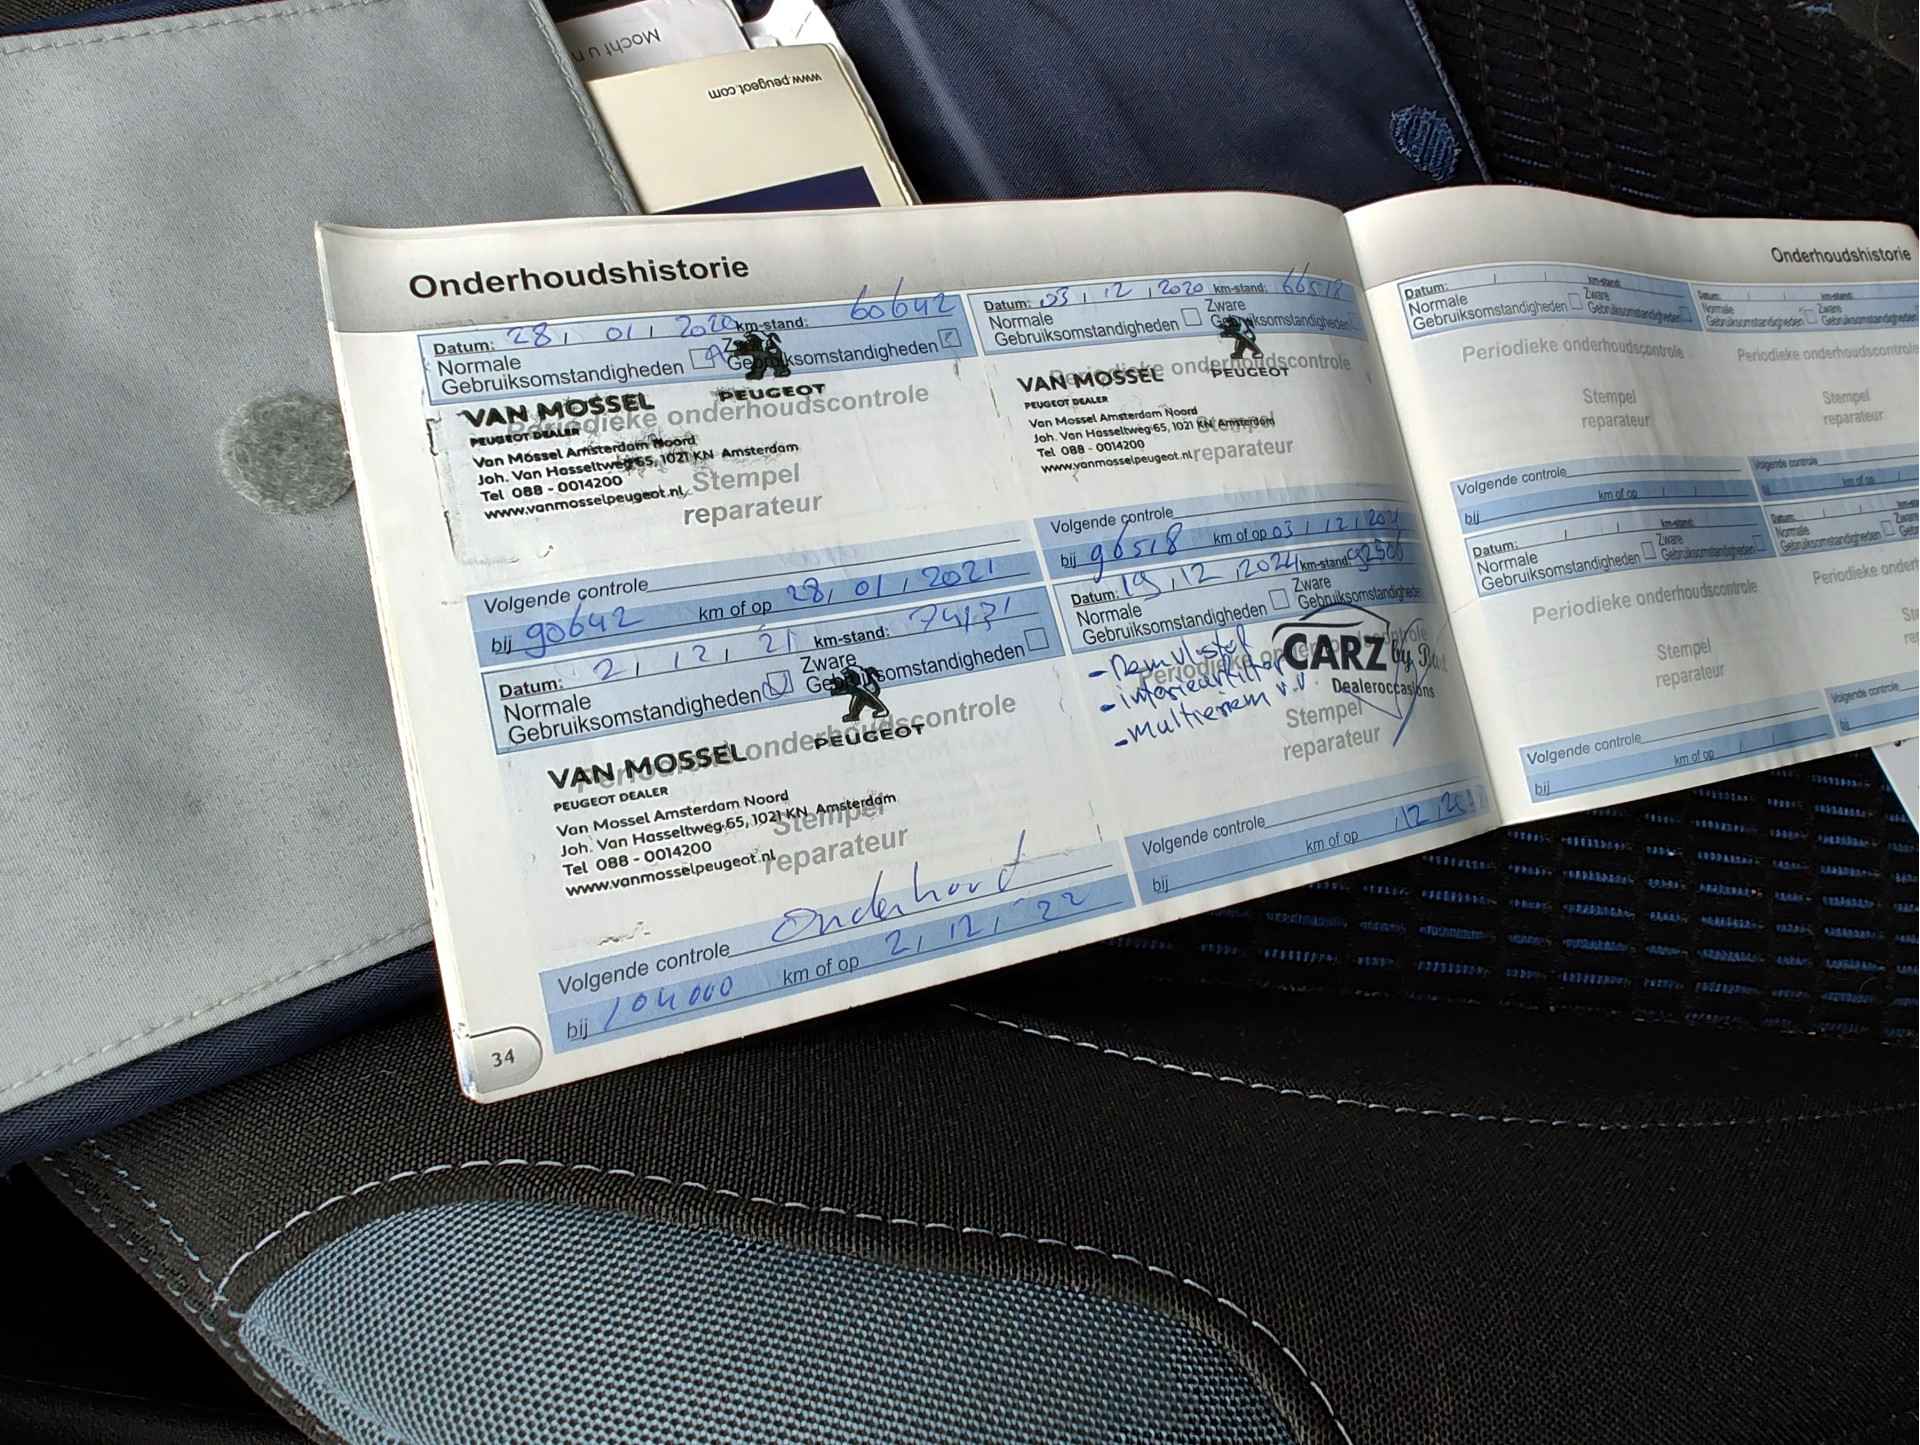 Mocht u n
www.peugeot.com
Onderhoudshistorie
Datum: 28, 01, 2020 km-stand: 60642
Normale
Gebruiksomstandigheden
Gebruiksomstandigheden
PEUGEOT
VAN MOSSEL
PEUGEOT DEALER
Periodieke onderhoudscontrole
Van Mossel Amsterdam Noord
Joh. Van Hasseltweg 65, 1021 KN Amsterdam
Tel 088 - 0014200
www.vanmosselpeugeot.nl
Stempel
reparateur
Volgende controle
bij 90642 km of op 28, 01, 2021
Datum: 03, 12, 2020 km-stand: 66518
Normale
Gebruiksomstandigheden
Zware
Gebruiksomstandigheden
PEUGEOT
VAN MOSSEL
PEUGEOT DEALER
Periodieke onderhoudscontrole
Van Mossel Amsterdam Noord
Joh. Van Hasseltweg 65, 1021 KN Amsterdam
Tel 088 - 0014200
www.vanmosselpeugeot.nl
Stempel
reparateur
Volgende controle
bij 96518 km of op 03, 12, 2021
Datum: 2, 12, 21 km-stand:
Normale
Gebruiksomstandigheden
Zware
Gebruiksomstandigheden
PEUGEOT
VAN MOSSEL
PEUGEOT DEALER
Periodieke onderhoudscontrole
Van Mossel Amsterdam Noord
Joh. Van Hasseltweg 65, 1021 KN Amsterdam
Tel 088 - 0014200
www.vanmosselpeugeot.nl
Stempel
reparateur
Volgende controle Onderhoud
bij 104000 km of op 2, 12, 22
Datum: 19, 12, 2024 km-stand:
Normale
Gebruiksomstandigheden
Zware
Gebruiksomstandigheden
- Remvloeistof
- interieurfilter
- multiriem v.v.
CARZ by
Dealeroccasions
Periodieke onderhoudscontrole
Stempel
reparateur
Volgende controle
bij km of op
34
Onderhoudshistorie
Datum: km-stand:
Normale
Gebruiksomstandigheden
Zware
Gebruiksomstandigheden
Periodieke onderhoudscontrole
Stempel
reparateur
Volgende controle
bij km of op
Datum: km-stand:
Normale
Gebruiksomstandigheden
Zware
Gebruiksomstandigheden
Periodieke onderhoudscontrole
Stempel
reparateur
Volgende controle
bij km of op
Datum: km-stand:
Normale
Gebruiksomstandigheden
Zware
Gebruiksomstandigheden
Periodieke onderhoudscontrole
Stempel
reparateur
Volgende controle
bij km of op
Datum:
Normale
Gebruiksomstandigheden
Periodieke
Volgende controle
bij